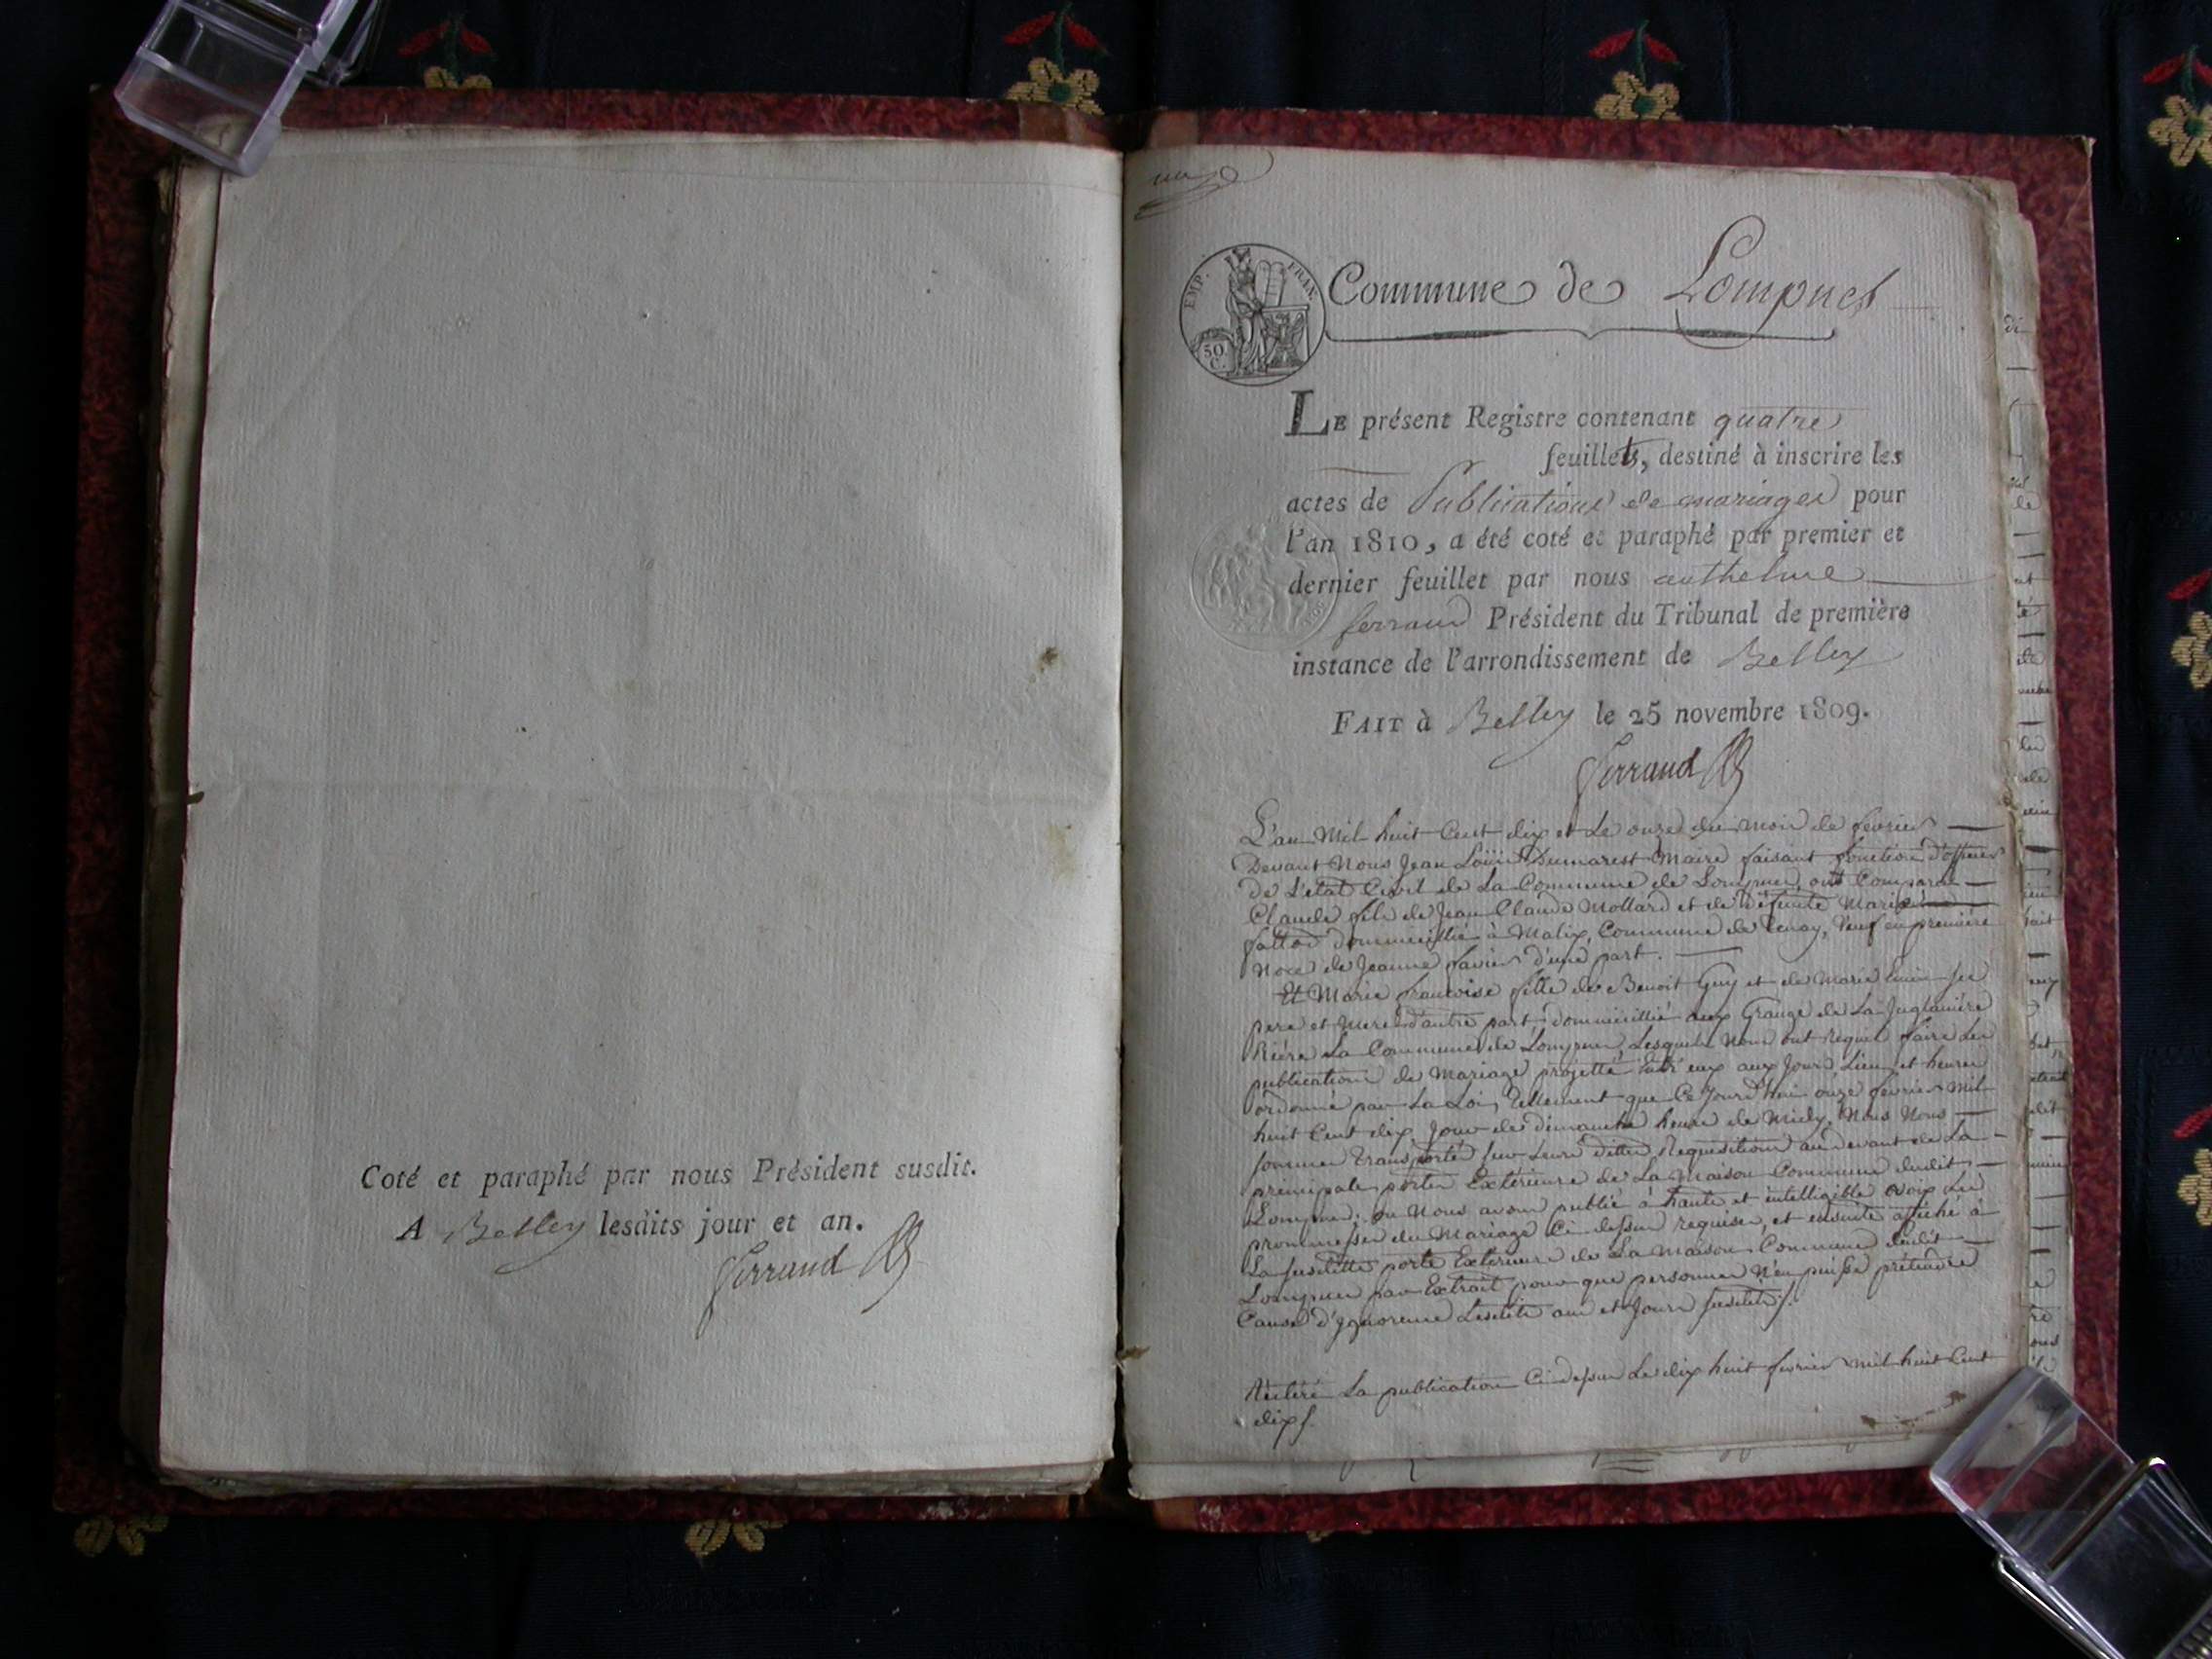 Coté et paraphé par nous Président susdit.
A Belley lesdits jour et an.
Ferrand
une
EMP. FRAN.
50 C.
Commune de Lompnes
LE présent Registre contenant quatre
feuillets, destiné à inscrire les
actes de Publications de mariages pour
l'an 1810, a été coté et paraphé par premier et
dernier feuillet par nous anthelme
ferrand Président du Tribunal de première
instance de l'arrondissement de Belley
FAIT à Belley le 25 novembre 1809.
Ferrand
L'an Mil huit Cent dix et Le onze du mois de fevrier
Devant Nous Jean Louis Dumarest Maire faisant fonction d'officier
de L'état Civil de La Commune de Lompnes, ont Comparu
Claude fils de Jean Claude Mollard et de Défunte Marie
domicillié à Malix, Commune de Tenay, Veuf en première
Noce de Jeanne favier d'une part.
Et Marie francoise fille de Benoit Guy et de Marie ses
pere et Mere d'autre part domicillié aux Grange de La
Riére La Commune de Lompnes, Lesquels Nous ont Requis faire Les
publications de Mariage projetté entr'eux aux Jours, Lieu et heures
ordonné par La Loi, tellement que Ce Jourd'hui onze fevrier Mil
huit Cent dix Jour de dimanche heure de Midy, Nous Nous
sommes transporté sur Leurs dittes Requisitions au devant de La
principale porte Extérieure de La Maison Commune dudit
Lompnes; ou Nous avons publié à haute et intelligible voix Les
promesses du Mariage Ci dessus requises, et ensuite affiché à
La susditte porte Extérieure de La Maison Commune dudit
Lompnes par Extrait pour que personne N'en puisse prétendre
Cause d'Ignorance Lesdits an et Jours susdits.
Réitéré La publication Ci dessus Le dix huit fevrier mil huit Cent
dix